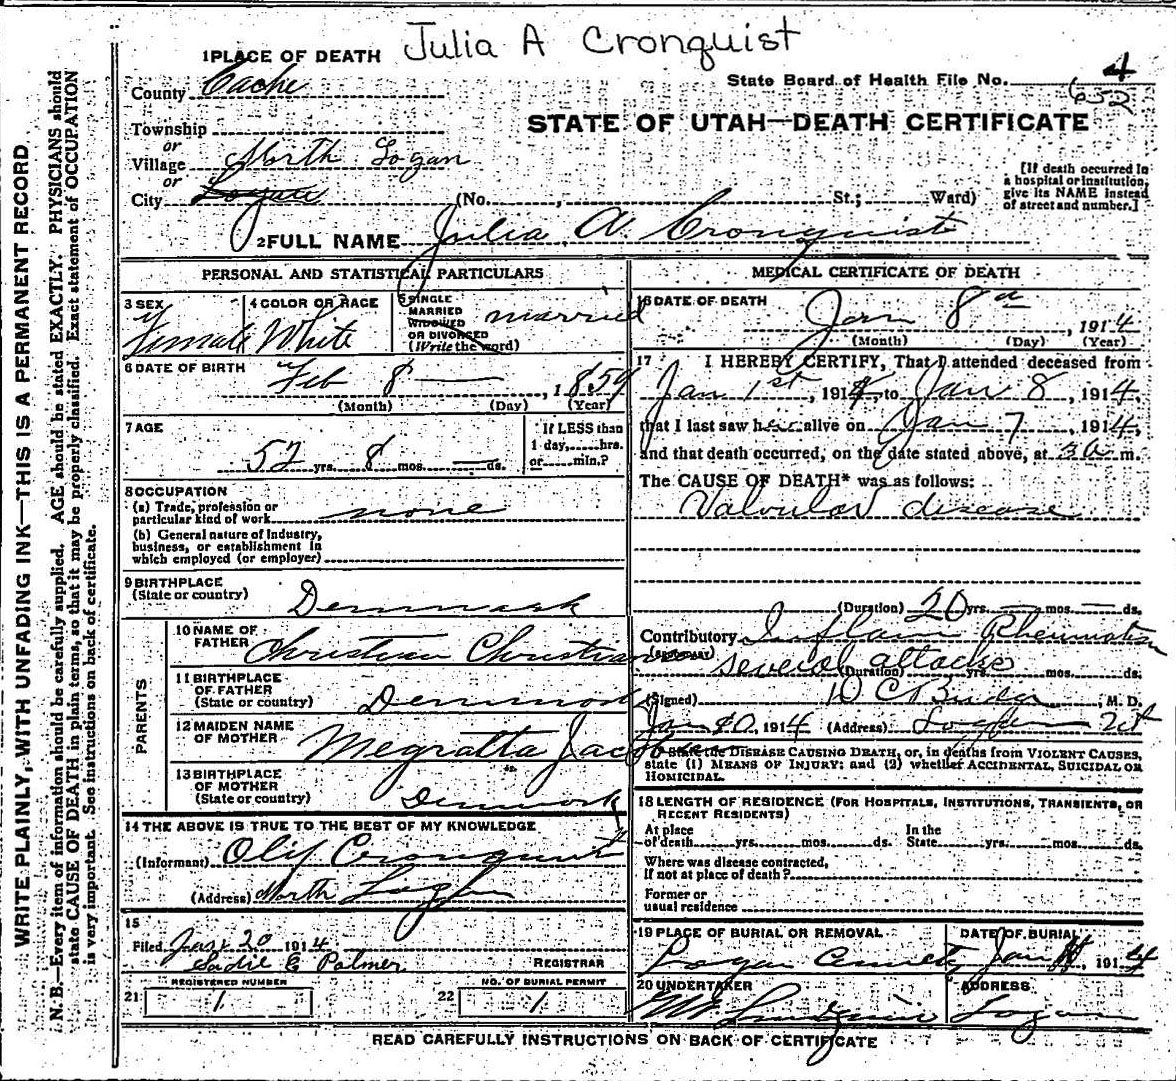 Julia A Cronquist
1 PLACE OF DEATH
County Cache
State Board of Health File No. 4
652
STATE OF UTAH—DEATH CERTIFICATE
Township
or
Village North Logan
or
City Logan
(No. , St.; Ward)
[If death occurred in
a hospital or institution,
give its NAME instead
of street and number.]
2 FULL NAME Julia A. Cronquist
PERSONAL AND STATISTICAL PARTICULARS
3 SEX
Female
4 COLOR OR RACE
White
5 SINGLE
MARRIED
WIDOWED
OR DIVORCED
(Write the word)
married
6 DATE OF BIRTH
Feb 8 — , 1859
(Month) (Day) (Year)
7 AGE
52 yrs. 8 mos. — ds.
If LESS than
1 day, hrs.
or min.?
8 OCCUPATION
(a) Trade, profession or
particular kind of work none
(b) General nature of Industry,
business, or establishment in
which employed (or employer)
9 BIRTHPLACE
(State or country) Denmark
PARENTS
10 NAME OF
FATHER Christian
11 BIRTHPLACE
OF FATHER
(State or country) Denmark
12 MAIDEN NAME
OF MOTHER Megralta
13 BIRTHPLACE
OF MOTHER
(State or country) Denmark
14 THE ABOVE IS TRUE TO THE BEST OF MY KNOWLEDGE
(Informant) Olif Cronquist
(Address) North Logan
15
Filed Jan 20 1914
Sadie E Palmer REGISTRAR
21 REGISTERED NUMBER
1
22 NO. OF BURIAL PERMIT
1
MEDICAL CERTIFICATE OF DEATH
16 DATE OF DEATH
Jan 8 , 1914
(Month) (Day) (Year)
17 I HEREBY CERTIFY, That I attended deceased from
Jan 1st , 1914, to Jan 8 , 1914,
that I last saw her alive on Jan 7 , 1914,
and that death occurred, on the date stated above, at 3 a m.
The CAUSE OF DEATH* was as follows:
Valvular disease
(Duration) 20 yrs. — mos. — ds.
Contributory Inflam Rheumatism
(SECONDARY) several attacks
(Duration) yrs. mos. ds.
(Signed) , M. D.
Jan 10, 1914 (Address) Logan Ut
* State the DISEASE CAUSING DEATH, or, in deaths from VIOLENT CAUSES,
state (1) MEANS OF INJURY; and (2) whether ACCIDENTAL, SUICIDAL OR
HOMICIDAL.
18 LENGTH OF RESIDENCE (FOR HOSPITALS, INSTITUTIONS, TRANSIENTS, OR
RECENT RESIDENTS)
At place
of death yrs. mos. ds.
In the
State yrs. mos. ds.
Where was disease contracted,
If not at place of death?
Former or
usual residence
19 PLACE OF BURIAL OR REMOVAL
Logan
DATE OF BURIAL
Jan , 1914
20 UNDERTAKER
ADDRESS
Logan
READ CAREFULLY INSTRUCTIONS ON BACK OF CERTIFICATE
WRITE PLAINLY, WITH UNFADING INK—THIS IS A PERMANENT RECORD.
N. B.—Every item of information should be carefully supplied. AGE should be stated EXACTLY. PHYSICIANS should
state CAUSE OF DEATH in plain terms, so that it may be properly classified. Exact statement of OCCUPATION
is very important. See instructions on back of certificate.